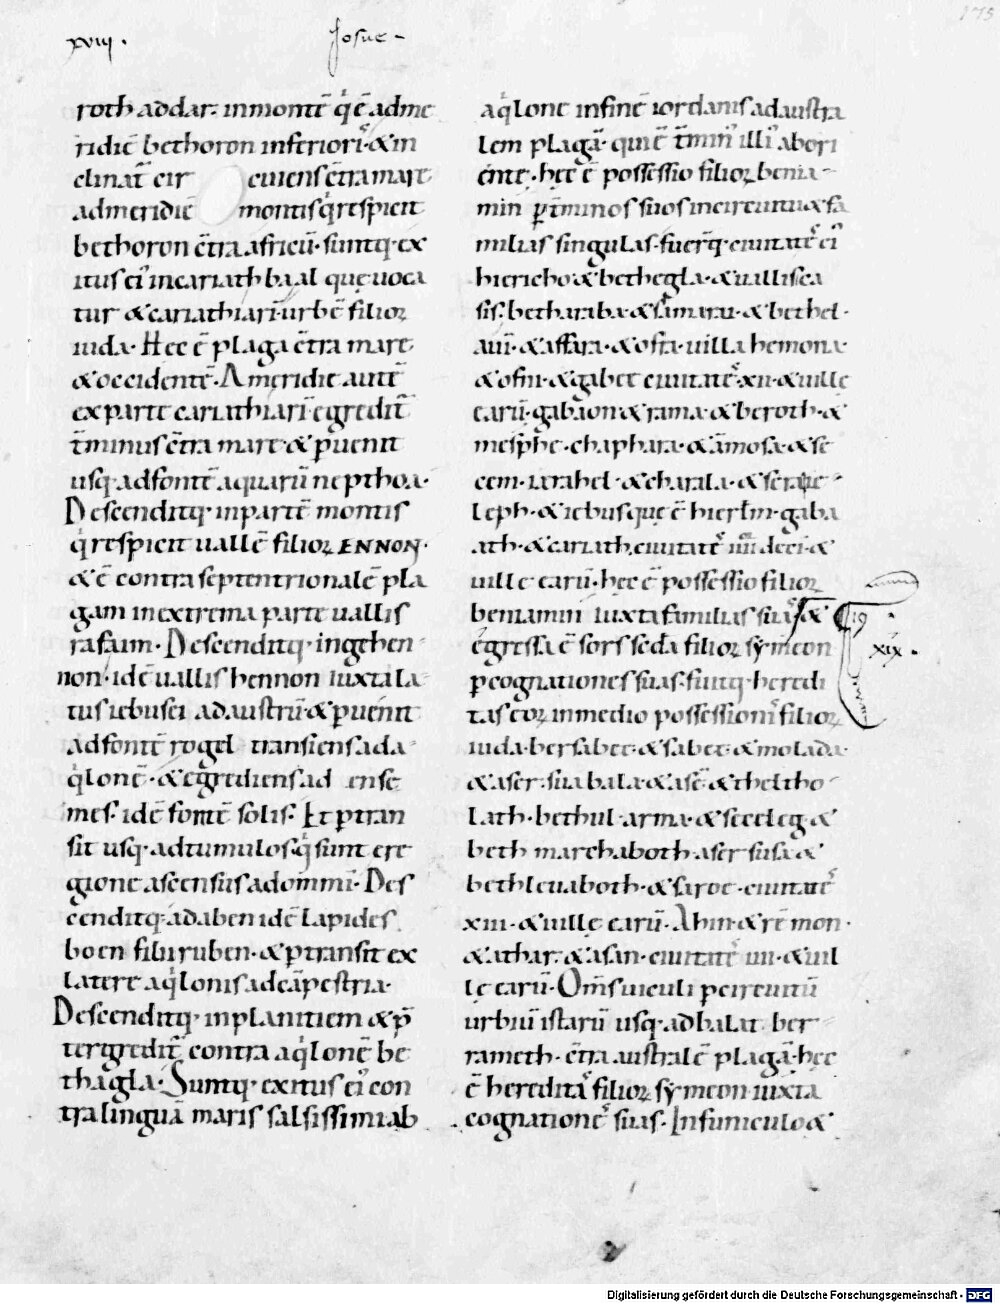 xviij. Josue -
175
roth addar. in monte q̇ ē ad me
ridiē bethoron inferiori᷒. & in
clinat̄ cir cuiens c̄tra mare
ad meridiē montis q̇ respicit
bethoron c̄tra africū. suntq; ex
itus ei᷒ in cariath baal que uoca
tur & cariathiarī urbē filioꝝ
iuda. Hec ē plaga c̄tra mare
& occidentē. A meridie autē
ex parte cariathiarī egredit̄
t̄minus c̄tra mare & ꝑuenit
usq; ad fontē aquarū nepthoa.
Descenditq; in partē montis
q̇ respicit uallē filioꝝ ENNON.
& ē contra septentrionalē pla
gam in extrema parte uallis
rafaim. Descenditq; in gehen
non. idē uallis hennon iuxta la
tus iebusei ad austrū. & ꝑuenit
ad fontē rogel transiens ad a
q̇lonē. & egrediens ad ense
mes. idē fontē solis. Et ꝑtran
sit usq; ad tumulos q̇ sunt e re
gione ascensus adommi. Des
cenditq; ad aben idē lapides
boen filii ruben. & ꝑtransit ex
latere aq̇lonis ad cāpestria.
Descenditq; in planitiem & p̄
tergredit̄ contra aq̇lonē be
thagla. Suntq; exitus ei᷒ con
tra linguā maris salsissimi ab
aq̇lone in finē iordanis ad austra
lem plagā. qui ē t̄min᷒ illi᷒ ab ori
ente. hec ē possessio filioꝝ benia
min ꝑ t̄minos suos in circuitu & fa
milias singulas. fuer̄q; ciuitate᷒ ei᷒
hiericho & bethegla. & uallis ca
sis. betharaba. & samarai. & bethel.
auī. & affara. & ofra. uilla hemona.
& ofni. & gabee ciuitate᷒. xii. & uille
earū. gabaon & rama. & beroth. &
mesphe. chaphara. & āmosa. & re
cem. iarabel. & tharala. & sera
leph. & iebus que ē hierl̄m. gaba
ath. & cariath. ciuitate᷒ iiii deci᷒. &
uille earū. hec ē possessio filioꝝ
beniamin iuxta familias suas. &
xix.
egressa ē sors sc̄da filioꝝ symeon
ꝑ cognationes suas. fuitq; heredi
tas eoꝝ in medio possessioni᷒ filioꝝ
iuda. bersabee. & sabee. & molada.
& aser. sua bala. & asē. & theltho
lath. bethul. arma. & seceleg. &
beth marchaboth. aser susa. &
bethleuaboth. & saroe. ciuitate᷒
xiii. & uille earū. Ahin. & rēmon.
& athar. & asan. ciuitate᷒ iiii. & uil
le earū. Om̄s uiculi ꝑ circuitū
urbiū istarū usq; ad balat ber
rameth. c̄tra australē plagā. hec
ē heredita᷒ filioꝝ symeon iuxta
cognatione᷒ suas. In funiculo &
Digitalisierung gefördert durch die Deutsche Forschungsgemeinschaft - DFG